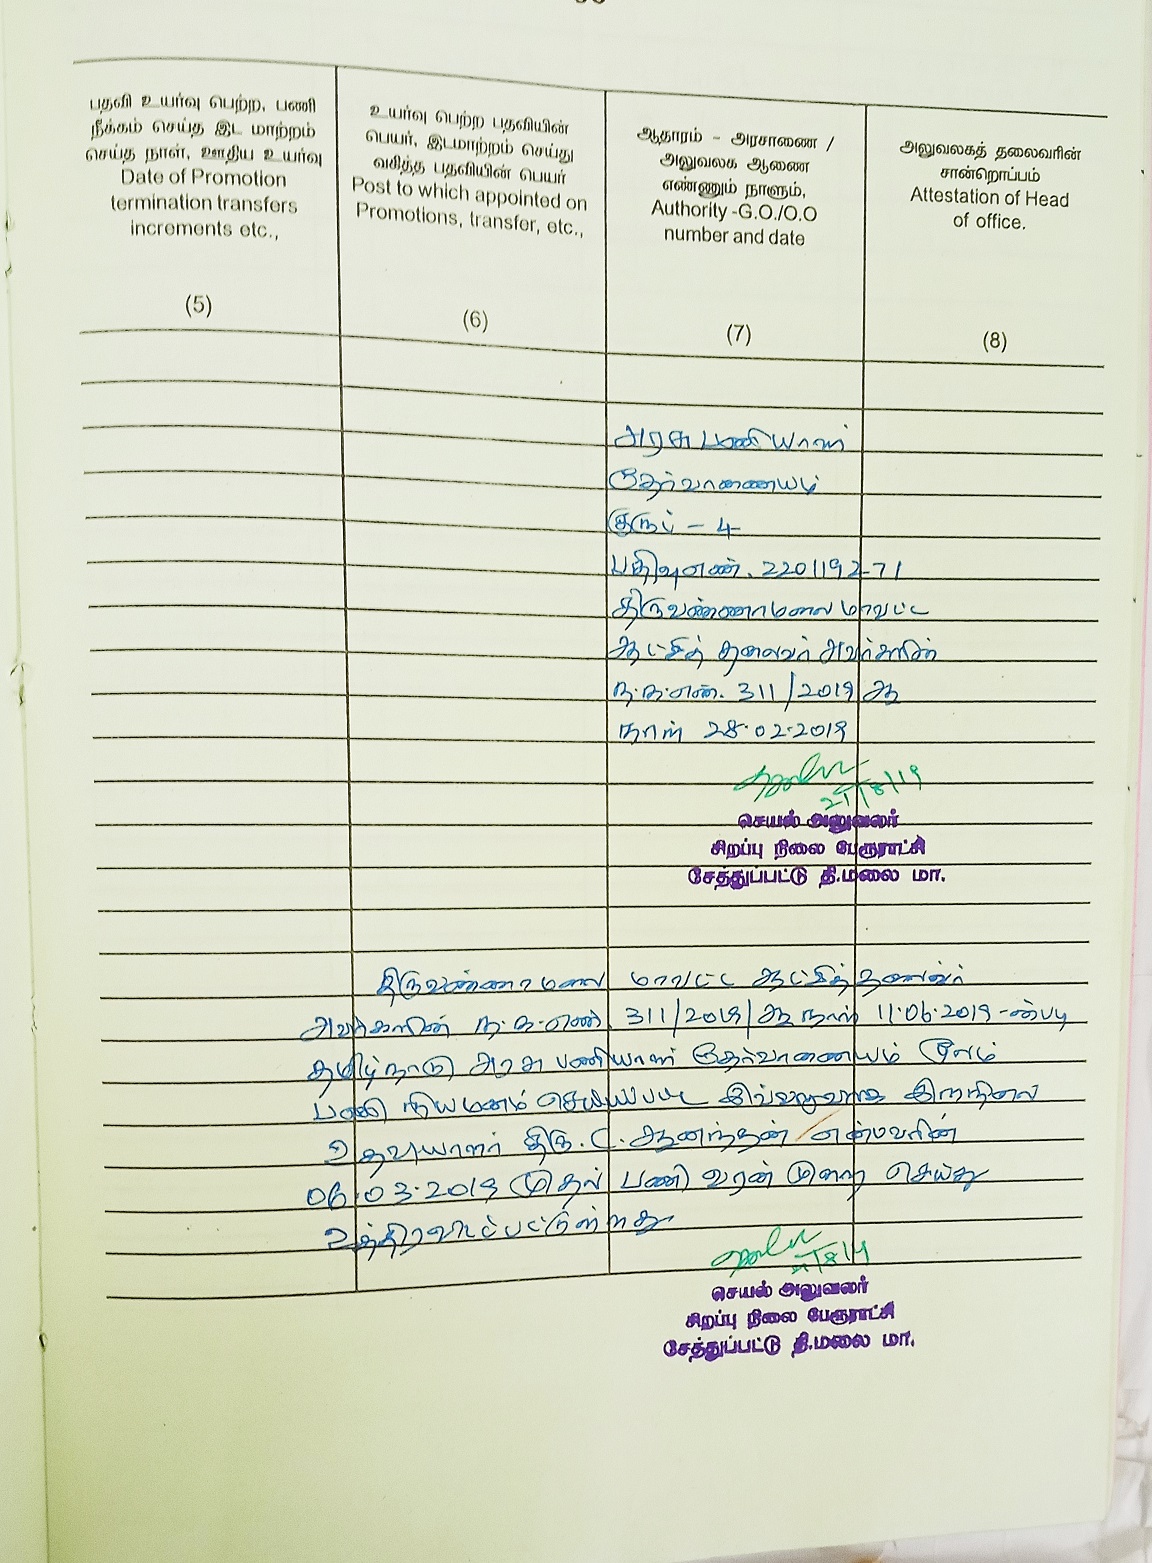 பதவி உயர்வு பெற்ற, பணி
நீக்கம் செய்த இட மாற்றம்
செய்த நாள், ஊதிய உயர்வு
Date of Promotion
termination transfers
increments etc.,
(5)
உயர்வு பெற்ற பதவியின்
பெயர், இடமாற்றம் செய்து
வகித்த பதவியின் பெயர்
Post to which appointed on
Promotions, transfer, etc.,
(6)
ஆதாரம் - அரசாணை /
அலுவலக ஆணை
எண்ணும் நாளும்,
Authority -G.O./O.O
number and date
(7)
அலுவலகத் தலைவரின்
சான்றொப்பம்
Attestation of Head
of office.
(8)
அரசு பணியாளர்
தேர்வாணையம்
குரூப் - 4
பதிவுஎண். 220119271
திருவண்ணாமலை மாவட்ட
ஆட்சித் தலைவர் அவர்களின்
ந.க.எண். 311/2019 ஆ
நாள் 28.02.2019
/8/19
செயல் அலுவலர்
சிறப்பு நிலை பேரூராட்சி
சேத்துப்பட்டு தி.மலை மா.
திருவண்ணாமலை மாவட்ட ஆட்சித்தலைவர்
அவர்களின் ந.க.எண் 311/2019/ஆ நாள் 11.06.2019-ன்படி
தமிழ்நாடு அரசு பணியாளர் தேர்வாணையம் மூலம்
பணி நியமனம் செய்யப்பட்ட இவ்வலுவலக இளநிலை
உதவியாளர் திரு. C. ஆனந்தன் என்பவரின்
06.03.2019 முதல் பணி வரன் முறை செய்து
உத்திரவிடப்பட்டுள்ளது.
செயல் அலுவலர்
சிறப்பு நிலை பேரூராட்சி
சேத்துப்பட்டு தி.மலை மா.